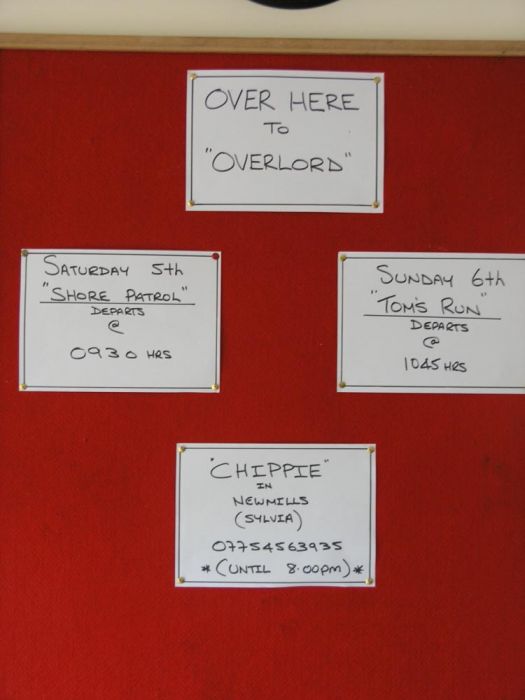 OVER HERE
TO
"OVERLORD"
SATURDAY 5th
"SHORE PATROL"
DEPARTS
@
0930 HRS
SUNDAY 6th
"TOM'S RUN"
DEPARTS
@
1045 HRS
"CHIPPIE"
IN
NEWMILLS
(SYLVIA)
07754563935
*(UNTIL 8.00PM)*